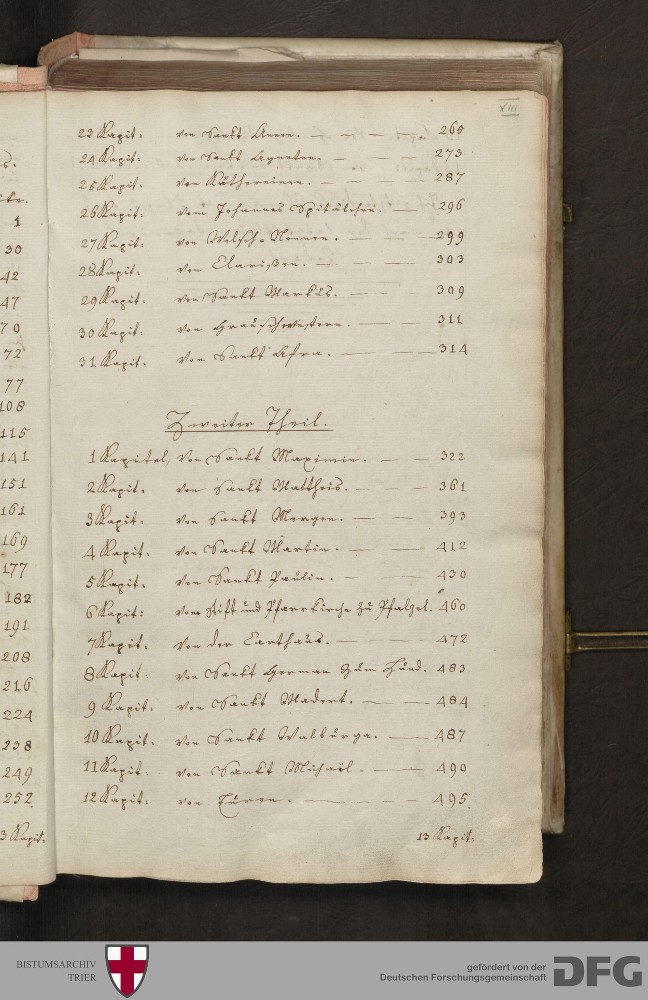 XIII
23 Kapit: von Sankt Annen. — — — — 265
24 Kapit: von Sankt Agneten. — — — 273
25 Kapit. von Katharainen. — — — — 287
26 Kapit: vom Johannes Spitälchen. — 296
27 Kapit: von Welsch-Nonnen. — — 299
28 Kapit: von Clarißen. — — — 303
29 Kapit: von Sankt Markus. — — 309
30 Kapit: von Grauschwestern. — — 311
31 Kapit. von Sankt Afra. — — — 314
Zweiter Theil.
1 Kapitel, von Sankt Maximin. — — 322
2 Kapit. von Sankt Mattheis. — — 361
3 Kapit: von Sankt Mergen. — — 393
4 Kapit. von Sankt Martin. — — 412
5 Kapit. von Sankt Paulin. — — 430
6 Kapit: vom Stift und Pfarrkirche zu Pfalzel. 460
7 Kapit: von der Carthaus. — — 472
8 Kapit: von Sankt Herman zum Hund. 483
9 Kapit: von Sankt Madert. — — 484
10 Kapit. von Sankt Walburga. — 487
11 Kapit. von Sankt Michaël. — — 490
12 Kapit: von Euren. — — — — 495.
13 Kapit:
1
30
42
47
70
72
77
108
115
141
151
161
169
177
182
191
208
216
224
238
249
252
3 Kapit:
BISTUMSARCHIV
TRIER
gefördert von der
Deutschen Forschungsgemeinschaft
DFG